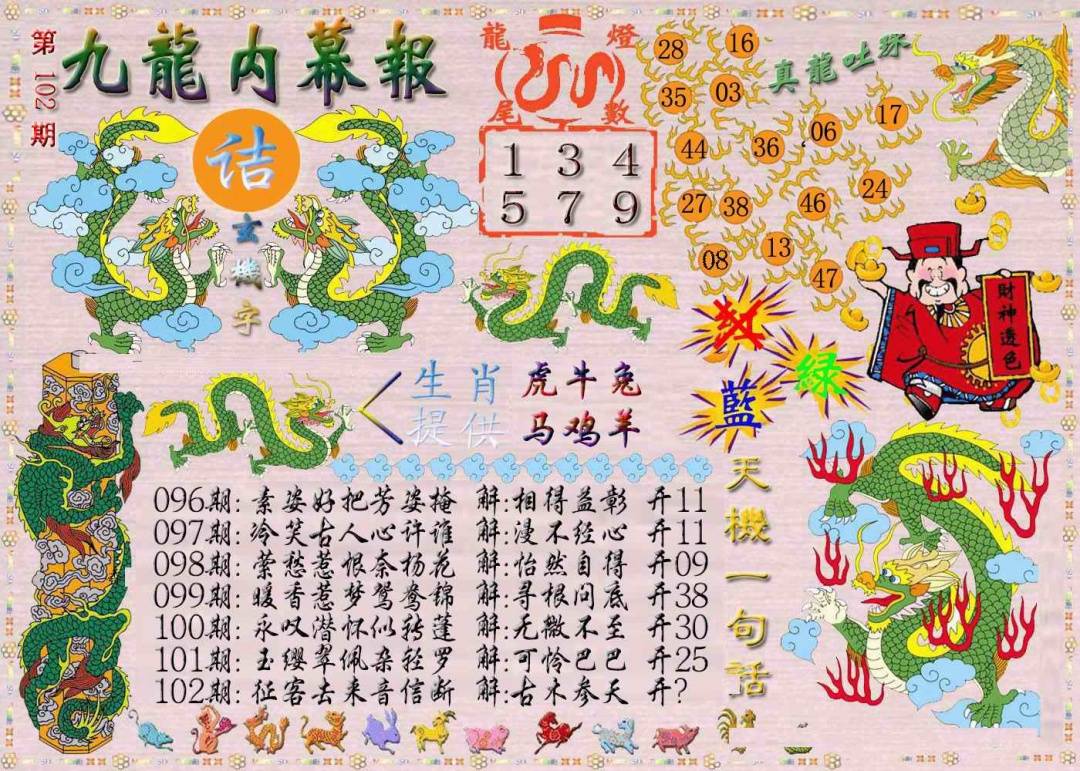 第102期
九龍内幕報
诘
玄機字
龍燈尾數
1 3 4
5 7 9
真龍吐珠
28 16
35 03
44 36 06 17
27 38 46 24
08 13 47
财神透色
红
綠
藍
生肖提供
虎牛兔
马鸡羊
天機一句话
096期:素姿好把芳姿掩 解:相得益彰 开11
097期:冷笑古人心许谁 解:漫不经心 开11
098期:萦愁惹恨奈杨花 解:怡然自得 开09
099期:暖香惹梦鸳鸯锦 解:寻根问底 开38
100期:永叹潜怀似转蓬 解:无微不至 开30
101期:玉缨翠佩杂轻罗 解:可怜巴巴 开25
102期:征客去来音信断 解:古木参天 开?